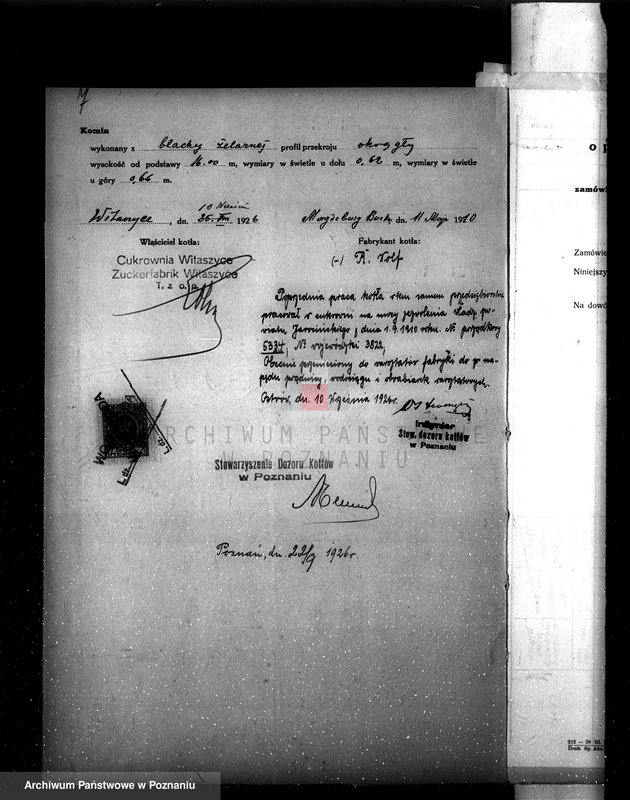 7
Komin
wykonany z blachy żelaznej profil przekroju okrągły
wysokość od podstawy 16.00 m, wymiary w świetle u dołu 0,62 m, wymiary w świetle
u góry 0,66 m.
10 Wrześni
Witaszyce, dn. 26. VII 1926
Magdeburg Buckau dn. 11 Maja 1910
Właściciel kotła:
Fabrykant kotła:
Cukrownia Witaszyce
Zuckerfabrik Witaszyce
T. z o. p.
(-) R. Wolf
Poprzednia praca kotła w tem samem przedsiębiorstwie
pracował w cukrowni na mocy zezwolenia Władz po-
wiatu Jarocińskiego z dnia 1.9.1910 roku. № porządkowy
5334, № wojewódzki 3822,
Obecnie przeniesiony do warsztatów fabryki do na-
pędu prądnicy, wodociągu i obrabiarek warsztatowych.
Ostrów, dn. 10 Września 1926r.
Inżynier
Stow. dozoru kotłów
w Poznaniu
ARCHIWUM PAŃSTWOWE
W POZNANIU
Stowarzyszenie Dozoru Kotłów
w Poznaniu
Poznań, dn. 22/9 1926r.
o p
zamówi
Zamówie
Niniejszy
Na dowó
212 — 26 III.
Druk. Sp. Akc.
Archiwum Państwowe w Poznaniu